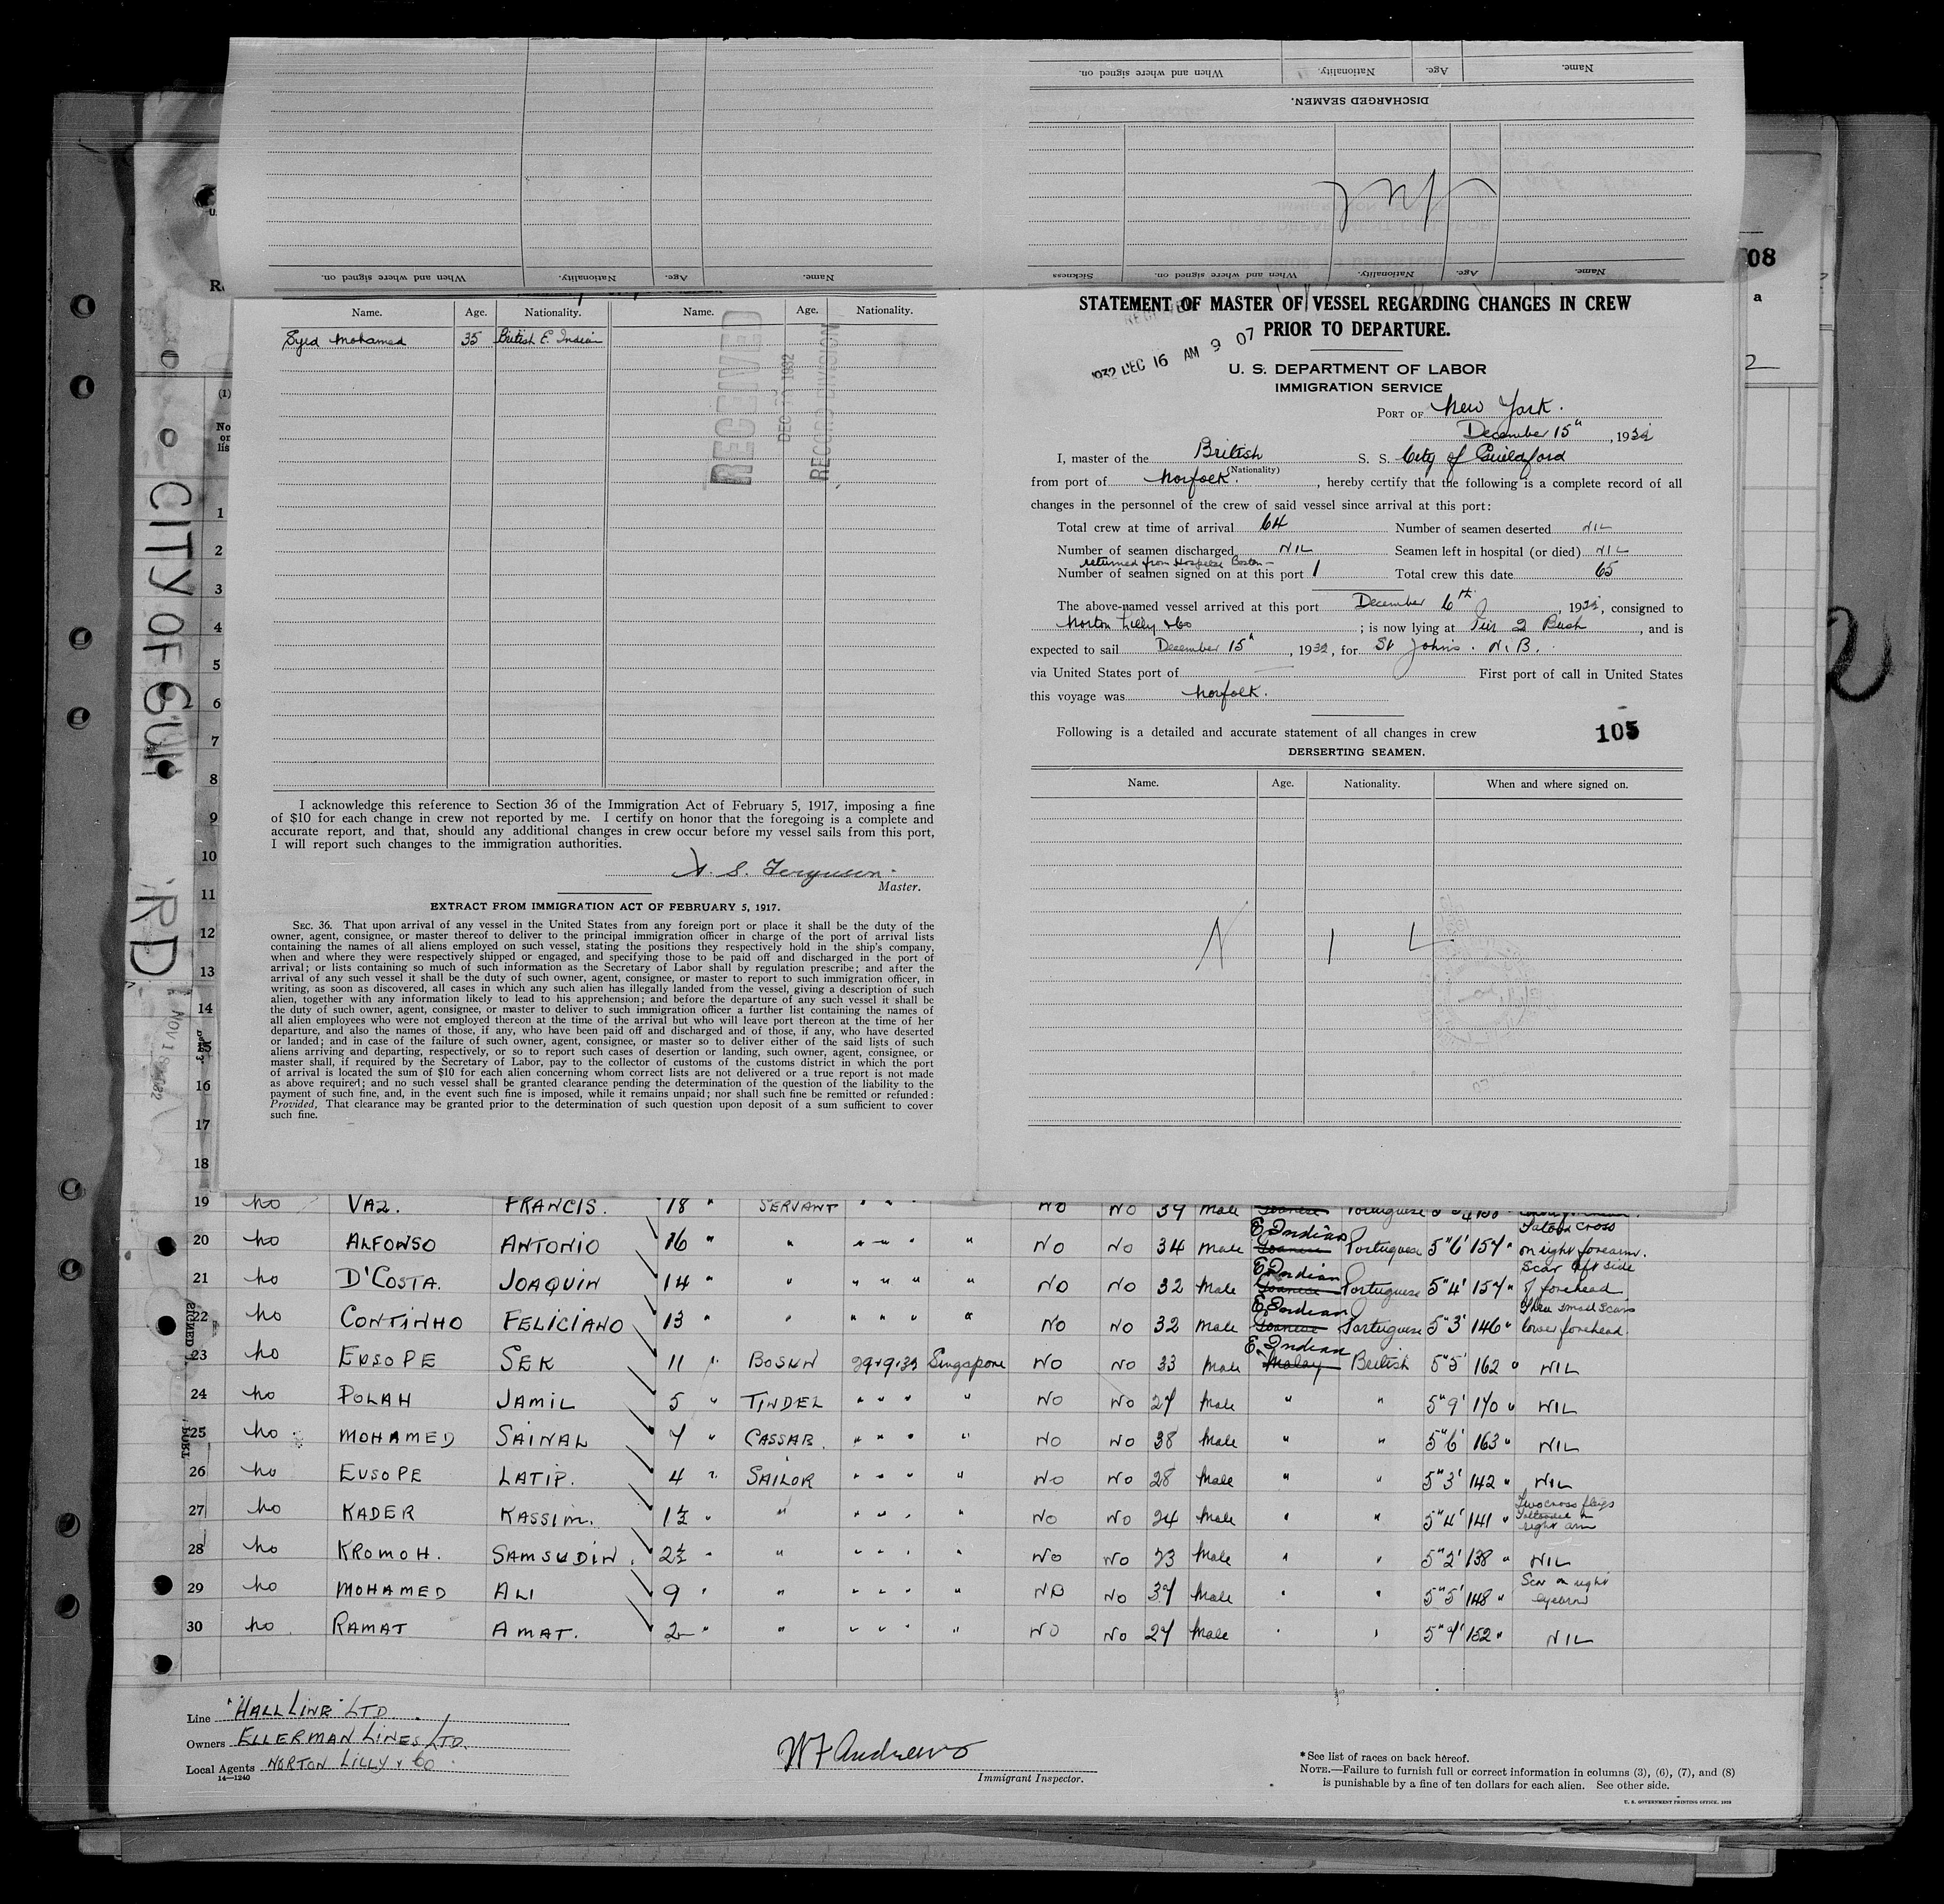 Name. Age. Nationality. When and where signed on.
DISCHARGED SEAMEN.
Name. Age. Nationality. When and where signed on. Sickness
Name. Age. Nationality. When and where signed on.
Name. Age. Nationality. Name. Age. Nationality.
Syed Mohamed 35 British E. Indian
RECEIVED
DEC 1932
RECORD DIVISION
I acknowledge this reference to Section 36 of the Immigration Act of February 5, 1917, imposing a fine
of $10 for each change in crew not reported by me. I certify on honor that the foregoing is a complete and
accurate report, and that, should any additional changes in crew occur before my vessel sails from this port,
I will report such changes to the immigration authorities.
S. Ferguson.
Master.
EXTRACT FROM IMMIGRATION ACT OF FEBRUARY 5, 1917.
SEC. 36. That upon arrival of any vessel in the United States from any foreign port or place it shall be the duty of the
owner, agent, consignee, or master thereof to deliver to the principal immigration officer in charge of the port of arrival lists
containing the names of all aliens employed on such vessel, stating the positions they respectively hold in the ship's company,
when and where they were respectively shipped or engaged, and specifying those to be paid off and discharged in the port of
arrival; or lists containing so much of such information as the Secretary of Labor shall by regulation prescribe; and after the
arrival of any such vessel it shall be the duty of such owner, agent, consignee, or master to report to such immigration officer, in
writing, as soon as discovered, all cases in which any such alien has illegally landed from the vessel, giving a description of such
alien, together with any information likely to lead to his apprehension; and before the departure of any such vessel it shall be
the duty of such owner, agent, consignee, or master to deliver to such immigration officer a further list containing the names of
all alien employees who were not employed thereon at the time of the arrival but who will leave port thereon at the time of her
departure, and also the names of those, if any, who have been paid off and discharged and of those, if any, who have deserted
or landed; and in case of the failure of such owner, agent, consignee, or master so to deliver either of the said lists of such
aliens arriving and departing, respectively, or so to report such cases of desertion or landing, such owner, agent, consignee, or
master shall, if required by the Secretary of Labor, pay to the collector of customs of the customs district in which the port
of arrival is located the sum of $10 for each alien concerning whom correct lists are not delivered or a true report is not made
as above required; and no such vessel shall be granted clearance pending the determination of the question of the liability to the
payment of such fine, and, in the event such fine is imposed, while it remains unpaid; nor shall such fine be remitted or refunded:
Provided, That clearance may be granted prior to the determination of such question upon deposit of a sum sufficient to cover
such fine.
STATEMENT OF MASTER OF VESSEL REGARDING CHANGES IN CREW
PRIOR TO DEPARTURE.
1932 DEC 16 AM 9 07
U. S. DEPARTMENT OF LABOR
IMMIGRATION SERVICE
PORT OF New York.
December 15th, 1932
I, master of the British S. S. City of Guildford
(Nationality)
from port of Norfolk., hereby certify that the following is a complete record of all
changes in the personnel of the crew of said vessel since arrival at this port:
Total crew at time of arrival 64 Number of seamen deserted NIL
Number of seamen discharged NIL Seamen left in hospital (or died) NIL
returned from Hospital Boston -
Number of seamen signed on at this port 1 Total crew this date 65
The above-named vessel arrived at this port December 6th, 1932, consigned to
Norton Lilly & Co; is now lying at Pier 2 Bush, and is
expected to sail December 15th, 1932, for St Johns. N.B.
via United States port of First port of call in United States
this voyage was Norfolk.
Following is a detailed and accurate statement of all changes in crew 105
DERSERTING SEAMEN.
Name. Age. Nationality. When and where signed on.
N I L
08
a
2
CITY OF GUI RD
NOV 18 1932
(1)
No
on
lis
1
2
3
4
5
6
7
8
9
10
11
12
13
14
16
17
18
19 no VAZ. FRANCIS. 18 " SERVANT " " " NO NO 39 Male Goanese Portuguese
20 no ALFONSO ANTONIO 16 " " " " " " NO NO 34 Male E. Indian Goanese Portuguese 5"6' 154 " Tatoo Cross on right forearm.
21 no D'COSTA. JOAQUIN 14 " " " " " " NO NO 32 Male E. Indian Goanese Portuguese 5"4' 154 " Scar left side of forehead
22 no CONTINHO FELICIANO 13 " " " " " " NO NO 32 Male E. Indian Goanese Portuguese 5"3' 146 " Three small scars lower forehead.
23 no EUSOPE SEK 11 " BOSUN 29.9.32 Singapore NO NO 33 Male E. Indian Malay British 5"5' 162 " NIL
24 no POLAH JAMIL 5 " TINDEL " " " " NO NO 27 Male " " 5"9' 170 " NIL
25 no MOHAMED SAINAL 7 " CASSAB. " " " " NO NO 38 Male " " 5"6' 163 " NIL
26 no EUSOPE LATIP. 4 " SAILOR " " " " NO NO 28 Male " " 5"3' 142 " NIL
27 no KADER KASSIM. 1½ " " " " " " NO NO 24 Male " " 5"4' 141 " Two cross flags tattooed on right arm
28 no KROMOH. SAMSUDIN. 2½ " " " " " " NO NO 23 Male " " 5"2' 138 " NIL
29 no MOHAMED ALI 9 " " " " " " NO NO 37 Male " " 5"5' 148 " Scar on right eyebrow
30 no RAMAT AMAT. 2 " " " " " " NO NO 27 Male " " 5"4' 152 " NIL
Line "HALL LINE" LTD.
Owners ELLERMAN LINES LTD.
Local Agents NORTON LILLY & Co.
14—1240
W F Andrews
Immigrant Inspector.
*See list of races on back hereof.
NOTE.—Failure to furnish full or correct information in columns (3), (6), (7), and (8)
is punishable by a fine of ten dollars for each alien. See other side.
U. S. GOVERNMENT PRINTING OFFICE.